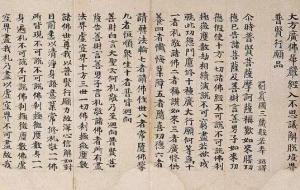 大方廣佛華嚴經入不思議解脫境界
普賢行願品
罽賓國三藏般若奉 詔譯
尒時普賢菩薩摩訶薩稱歎如來勝功
德已告諸菩薩及善財言善男子如來功
德假使十方一切諸佛經不可說不可說佛
剎極微塵數劫相續演說不可窮盡若欲成
就此功德門應修十種廣大行願何等為十
一者禮敬諸佛二者稱讚如來三者廣修供
養四者懺悔業障五者隨喜功德六者
請轉法輪七者請佛住世八者常隨佛學
九者恒順眾生十者普皆迴向
善財白言大聖云何禮敬乃至迴向普賢菩
薩告善財言善男子言禮敬諸佛者所有盡
法界虛空界十方三世一切佛剎極微塵數
諸佛世尊我以普賢行願力故深心信解如對
目前悉以清淨身語意業常修禮敬一一佛
所皆現不可說不可說佛剎極微塵數身一一
身遍禮不可說不可說佛剎極微塵數佛
虛空界盡我禮乃盡以虛空界不可盡故我